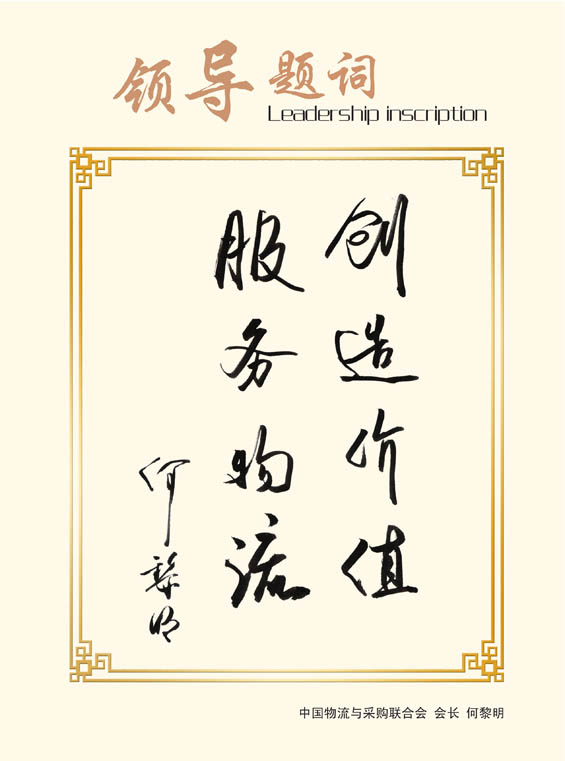 领导题词
Leadership inscription
创造价值
服务物流
何黎明
中国物流与采购联合会 会长 何黎明